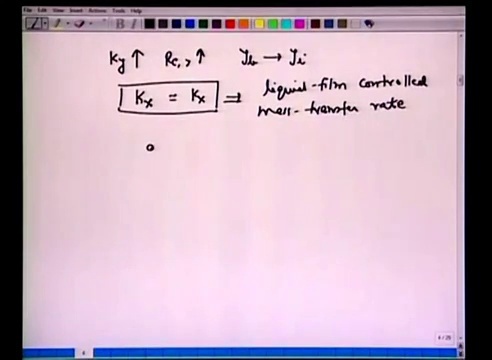 File Edit View Insert Actions Tools Help
Ky ↑ Re, ↑ yb → yi
Kx = kx ⇒ liquid-film controlled
mass-transfer rate
4/25